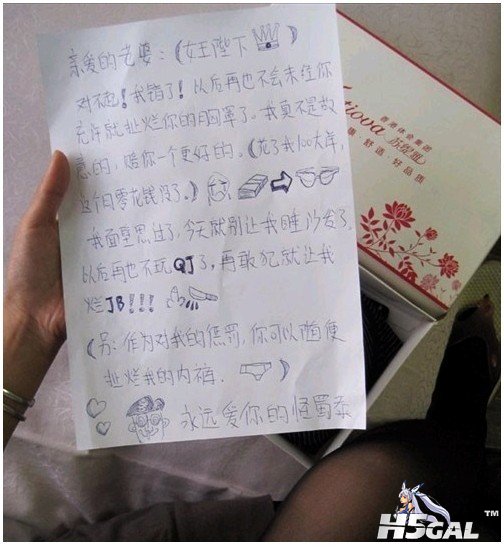 亲爱的老婆：（女王陛下）
对不起！我错了！以后再也不会未经你
允许就扯烂你的胸罩了。我真不是故
意的，赔你一个更好的。（花了我100大洋，
这个月零花钱没了。）
我面壁思过了，今天就别让我睡沙发了
以后再也不玩QJ了，再敢犯就让我
烂JB!!!
（另：作为对我的惩罚，你可以随便
扯烂我的内裤.
永远爱你的怪蜀黍
tiova
香港体会集团
康·舒适·好品质
H5GAL™